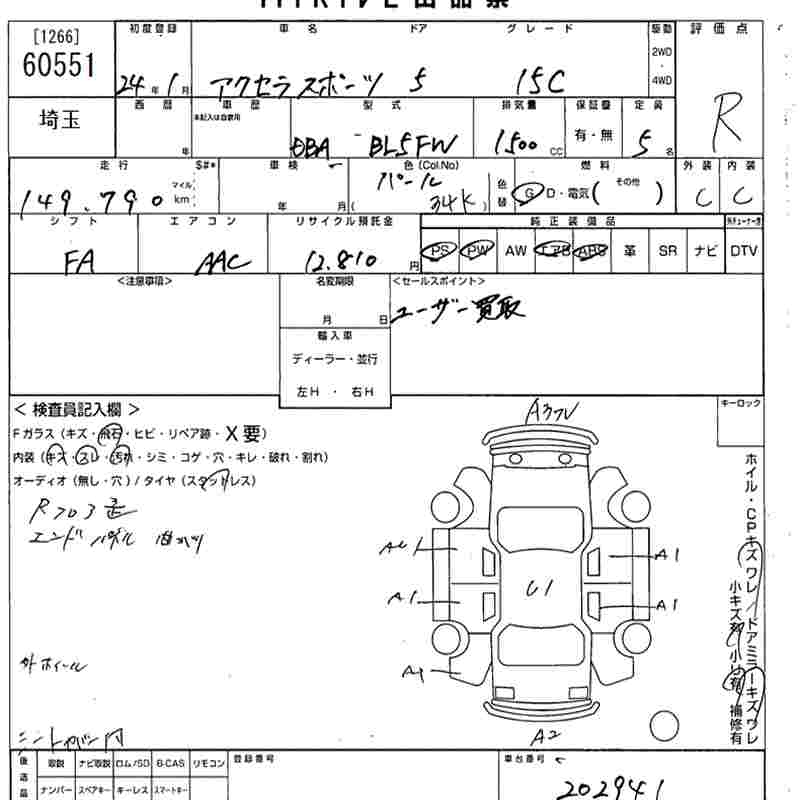 [1266]
60551
埼玉
初度登録
24年1月
車名 ドア グレード
アクセラスポーツ 5 15C
駆動
2WD
・
4WD
評価点
R
西暦
年
車歴
本記入は自家用
型式
DBA-BL5FW
排気量
1500cc
保証書
有・無
定員
5名
走行
149.790
マイル
km
$#*
車検
年 月
色(Col.No)
パール
( 34K )
色替
燃料
G D・電気( その他 )
外装
C
内装
C
シフト
FA
エアコン
AAC
リサイクル預託金
12.810円
純正装備品
PS PW AW エアB ABS 革 SR ナビ
DTV
<注意事項>
名変期限
月 日
輸入車
ディーラー・並行
左H ・ 右H
<セールスポイント>
ユーザー買取
<検査員記入欄>
Fガラス(キズ・飛石・ヒビ・リペア跡・X要)
内装(キズ・スレ・汚れ・シミ・コゲ・穴・キレ・破れ・割れ)
オーディオ(無し・穴)/タイヤ(スタッドレス)
エンドパネル
外ホイール
A3フレ
A1
A1
A1
A1
U1
A2
キーロック
ホイル・CPキズワレ/ドアミラーキズワレ
補修有
後送品
取説 ナビ取説 ロム/SD B-CAS リモコン
ナンバー スペアキー キーレス スマートキー
登録番号
車台番号
202941